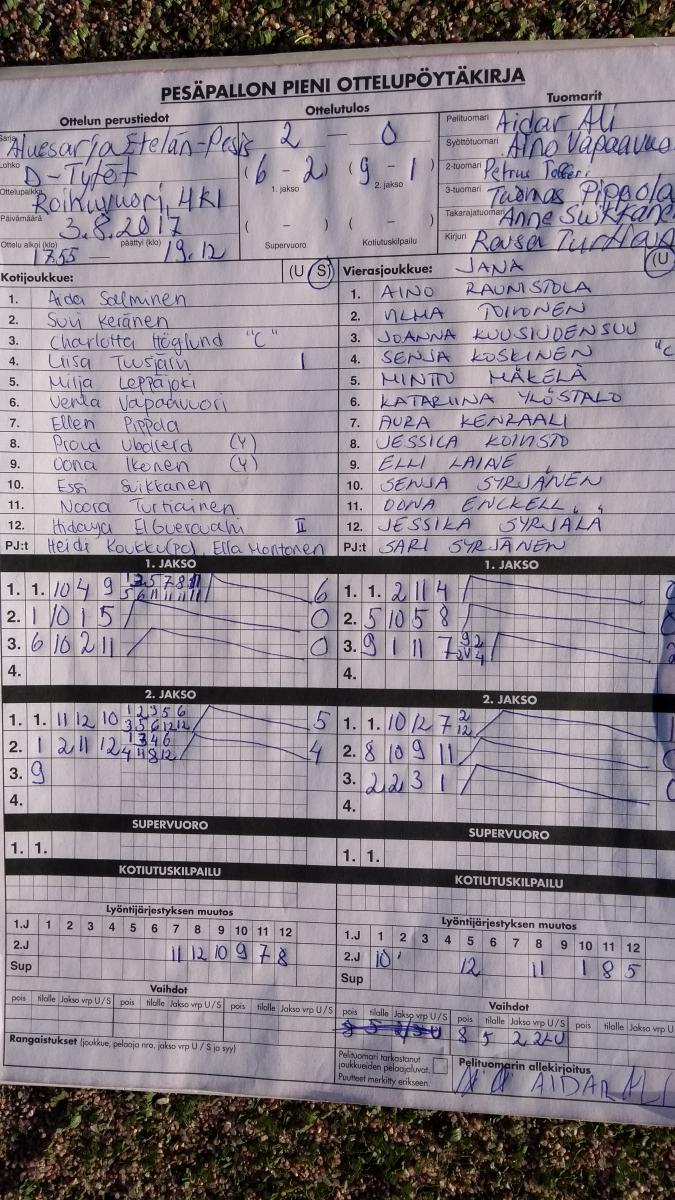 PESÄPALLON PIENI OTTELUPÖYTÄKIRJA
Ottelun perustiedot
Ottelutulos
Tuomarit
Sarja Aluesarja Etelän-Pesis
Lohko D-Tytöt
Ottelupaikka Roihuvuori, 4K1
Päivämäärä 3.8.2017
Ottelu alkoi (klo) 17.55 — päättyi (klo) 19.12
2 — 0
(6 - 2) (9 - 1)
1. jakso 2. jakso
( - ) ( - )
Supervuoro Kotiutuskilpailu
Pelituomari Aidar Ali
Syöttötuomari Aino Vapaavuo
2-tuomari Petrus
3-tuomari Tuomas Pippola
Takarajatuomari Anne Suikkane
Kirjuri Raisa Turtiain
Kotijoukkue: (U S)
1. Aida Salminen
2. Suvi Keränen
3. Charlotta Höglund "C"
4. Liisa Tuusjärvi I
5. Milja Leppäjoki
6. Venla Vapaavuori
7. Ellen Pippola
8. Proud (Y)
9. Oona Ikonen (Y)
10. Essi Suikkanen
11. Noora Turtiainen
12. Hidaya II
PJ:t Heidi Koukku(PJ), Ella Hontonen
Vierasjoukkue: JANA (U
1. AINO RAUNISTOLA
2. ILMA TOIVONEN
3. JOANNA KUUSIUDENSUU
4. SENJA KOSKINEN "C
5. MINTTU MÄKELÄ
6. KATARIINA YLÖSTALO
7. AURA KENRAALI
8. JESSICA KOIVISTO
9. ELLI LAINE
10. SENJA SYRJÄNEN
11. OONA ENCKELL
12. JESSIKA SYRJÄLÄ
PJ:t SARI SYRJÄNEN
1. JAKSO
1. 1. 10 4 9 6
2. 1 10 1 5 0
3. 6 10 2 11 0
4.
1. JAKSO
1. 1. 2 11 4
2. 5 10 5 8
3. 9 1 11 7 2
4.
2. JAKSO
1. 1. 11 12 10 1 2 3 5 6 5
3 5 6 12 12
2. 1 2 11 12 1 3 4 6 4
4 11 8 12
3. 9
4.
2. JAKSO
1. 1. 10 12 7 2 12 1
2. 8 10 9 11 0
3. 2 2 3 1 0
4.
SUPERVUORO
1. 1.
SUPERVUORO
1. 1.
KOTIUTUSKILPAILU
KOTIUTUSKILPAILU
Lyöntijärjestyksen muutos
1.J 1 2 3 4 5 6 7 8 9 10 11 12
2.J 11 12 10 9 7 8
Sup
Lyöntijärjestyksen muutos
1.J 1 2 3 4 5 6 7 8 9 10 11 12
2.J 10 12 11 1 8 5
Sup
Vaihdot
pois tilalle Jakso vrp U/S pois tilalle Jakso vrp U/S pois tilalle Jakso vrp U/S
Vaihdot
pois tilalle Jakso vrp U/S pois tilalle Jakso vrp U/S pois tilalle Jakso vrp U
8 5 2 2LU
Rangaistukset (joukkue, pelaaja nro, jakso vrp U / S ja syy)
Pelituomari tarkastanut joukkueiden pelaajaluvat.
Puutteet merkitty erikseen.
Pelituomarin allekirjoitus
AIDAR ALI